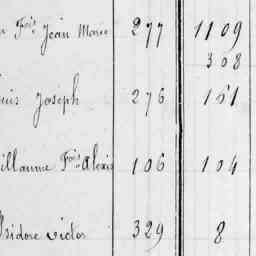 Fois Jean Marie 277 1109
308
Louis Joseph 276 161
Guillaume Fois Alexis 106 104
Isidore Victor 329 8